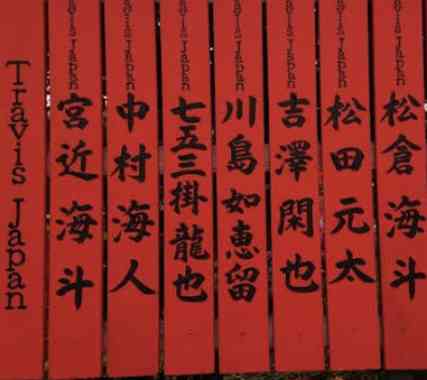 Travis Japan
Travis Japan
宮近海斗
Travis Japan
中村海人
Travis Japan
七五三掛龍也
Travis Japan
川島如恵留
Travis Japan
吉澤閑也
Travis Japan
松田元太
Travis Japan
松倉海斗